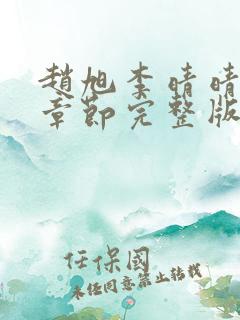 趙旭李晴晴
章節完整版
任保國
未經同意禁止轉載